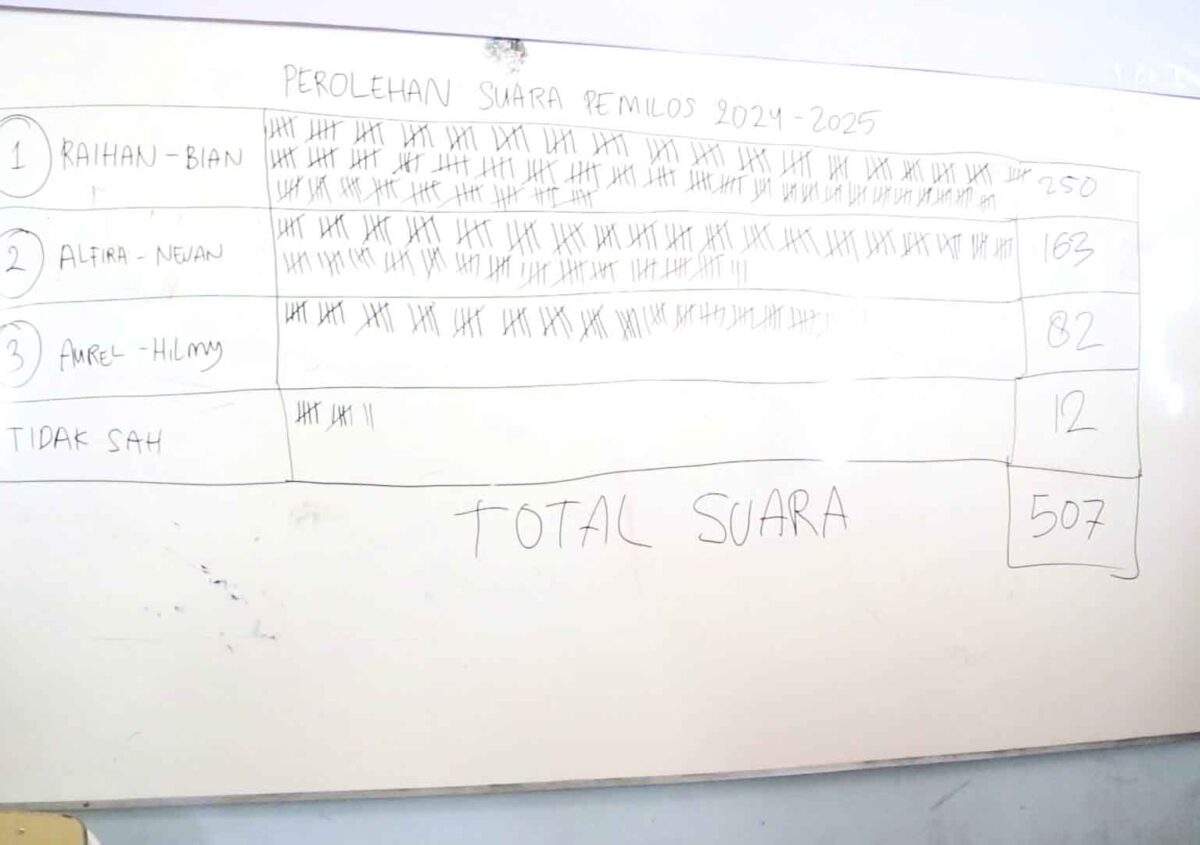 PEROLEHAN SUARA PEMILOS 2024-2025
1 RAIHAN-BIAN 250
2 ALFIRA-NEVAN 163
3 AUREL-HILMY 82
TIDAK SAH 12
TOTAL SUARA 507